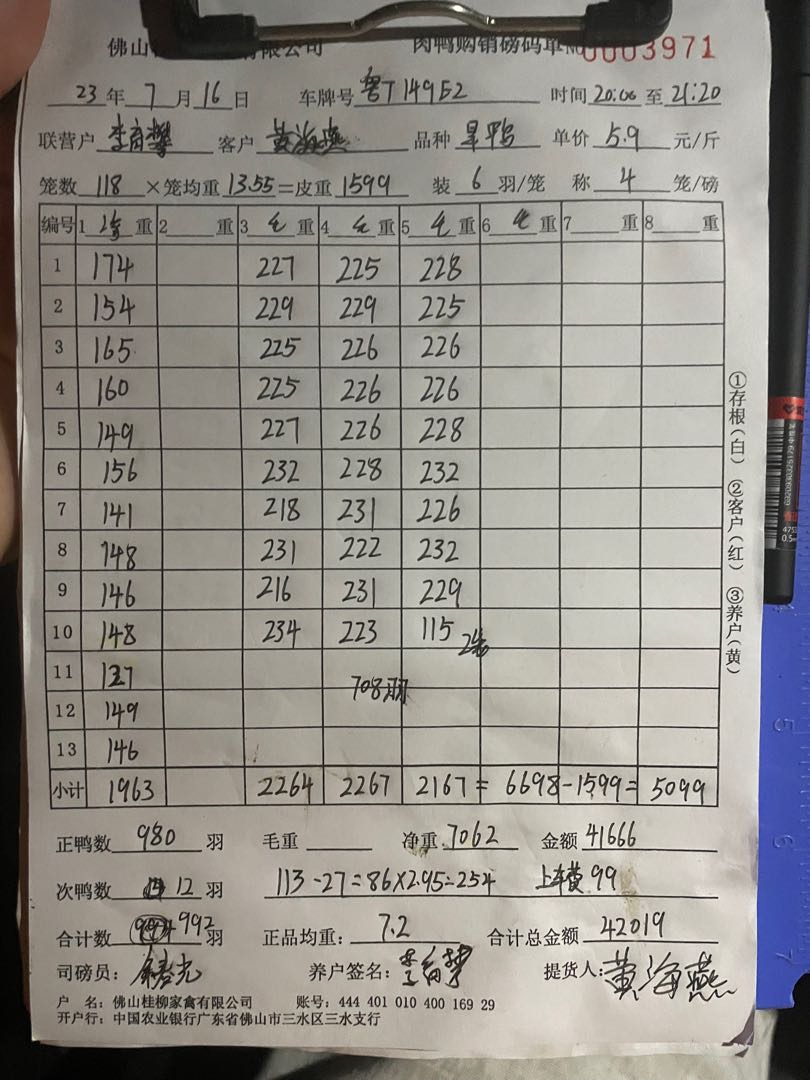 佛山 有限公司 肉鸭购销磅码单 № 0003971
23 年 7 月 16 日 车牌号 粤T149E2 时间 20:00 至 21:20
联营户 客户 黄海燕 品种 旱鸭 单价 5.9 元/斤
笼数 118 ×笼均重 13.55 =皮重 1599 装 6 羽/笼 称 4 笼/磅
编号 1 净 重 2 重 3 毛 重 4 毛 重 5 毛 重 6 毛 重 7 重 8 重
1 174 227 225 228
2 154 229 229 225
3 165 225 226 226
4 160 225 226 226
5 149 227 226 228
6 156 232 228 232
7 141 218 231 226
8 148 231 222 232
9 146 216 231 229
10 148 234 223 115 2笼
11 137 708羽
12 149
13 146
小计 1963 2264 2267 2167 = 6698 -1599= 5099
正鸭数 980 羽 毛重 净重 7062 金额 41666
次鸭数 12 羽 113-27=86×2.95=254 上车费 99
合计数 992 羽 正品均重: 7.2 合计总金额 42019
司磅员: 养户签名: 提货人: 黄海燕
户 名: 佛山桂柳家禽有限公司 账号: 444 401 010 400 169 29
开户行: 中国农业银行广东省佛山市三水区三水支行
①存根(白) ②客户(红) ③养户(黄)